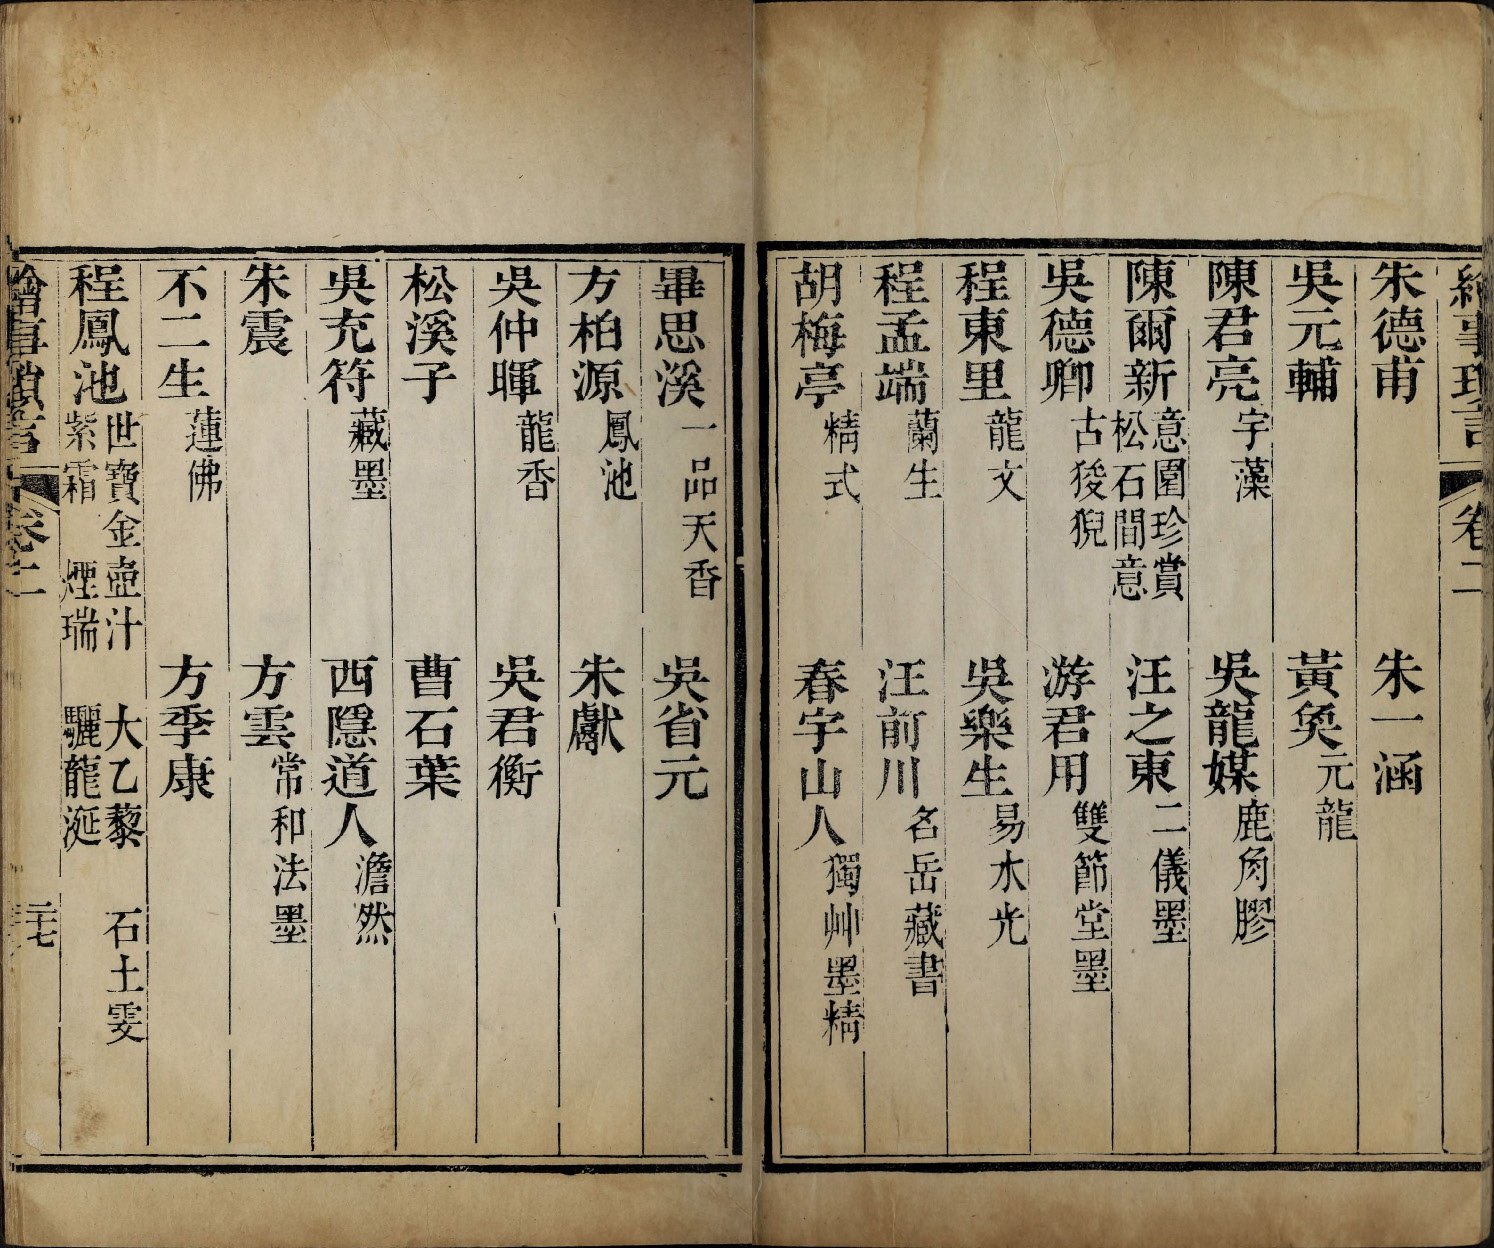 繪事瑣言 卷二
朱德甫 朱一涵
吳元輔 黃奐元龍
陳君亮宇藻 吳龍媒鹿角膠
陳爾新意園珍賞松石間意 汪之東二儀墨
吳德卿古狻猊 游君用雙節堂墨
程東里龍文 吳樂生易水光
程孟端蘭生 汪前川名岳藏書
胡梅亭精式 春宇山人獨艸墨精
畢思溪一品天香 吳省元
方柏源鳳池 朱獻
吳仲暉龍香 吳君衡
松溪子 曹石葉
吳充符藏墨 西隱道人澹然
朱震 方雲常和法墨
不二生蓮佛 方季康
程鳳池世寶金壺汁 大乙藜 石土雯紫霜 煙瑞 驪龍涎
繪事瑣言 卷二 二十七